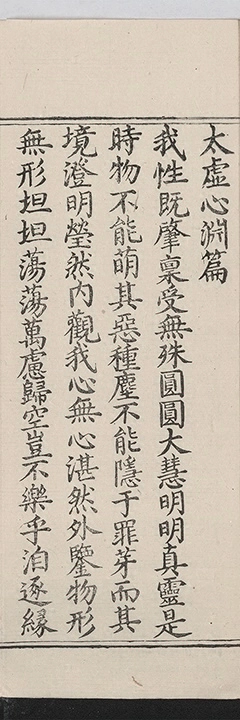 太虛心淵篇
我性既肇稟受無殊圓圓大慧明明真靈是
時物不能萌其惡種塵不能隱于罪芽而其
境澄明瑩然內觀我心無心湛然外鑒物形
無形坦坦蕩蕩萬慮歸空豈不樂乎泊逐緣